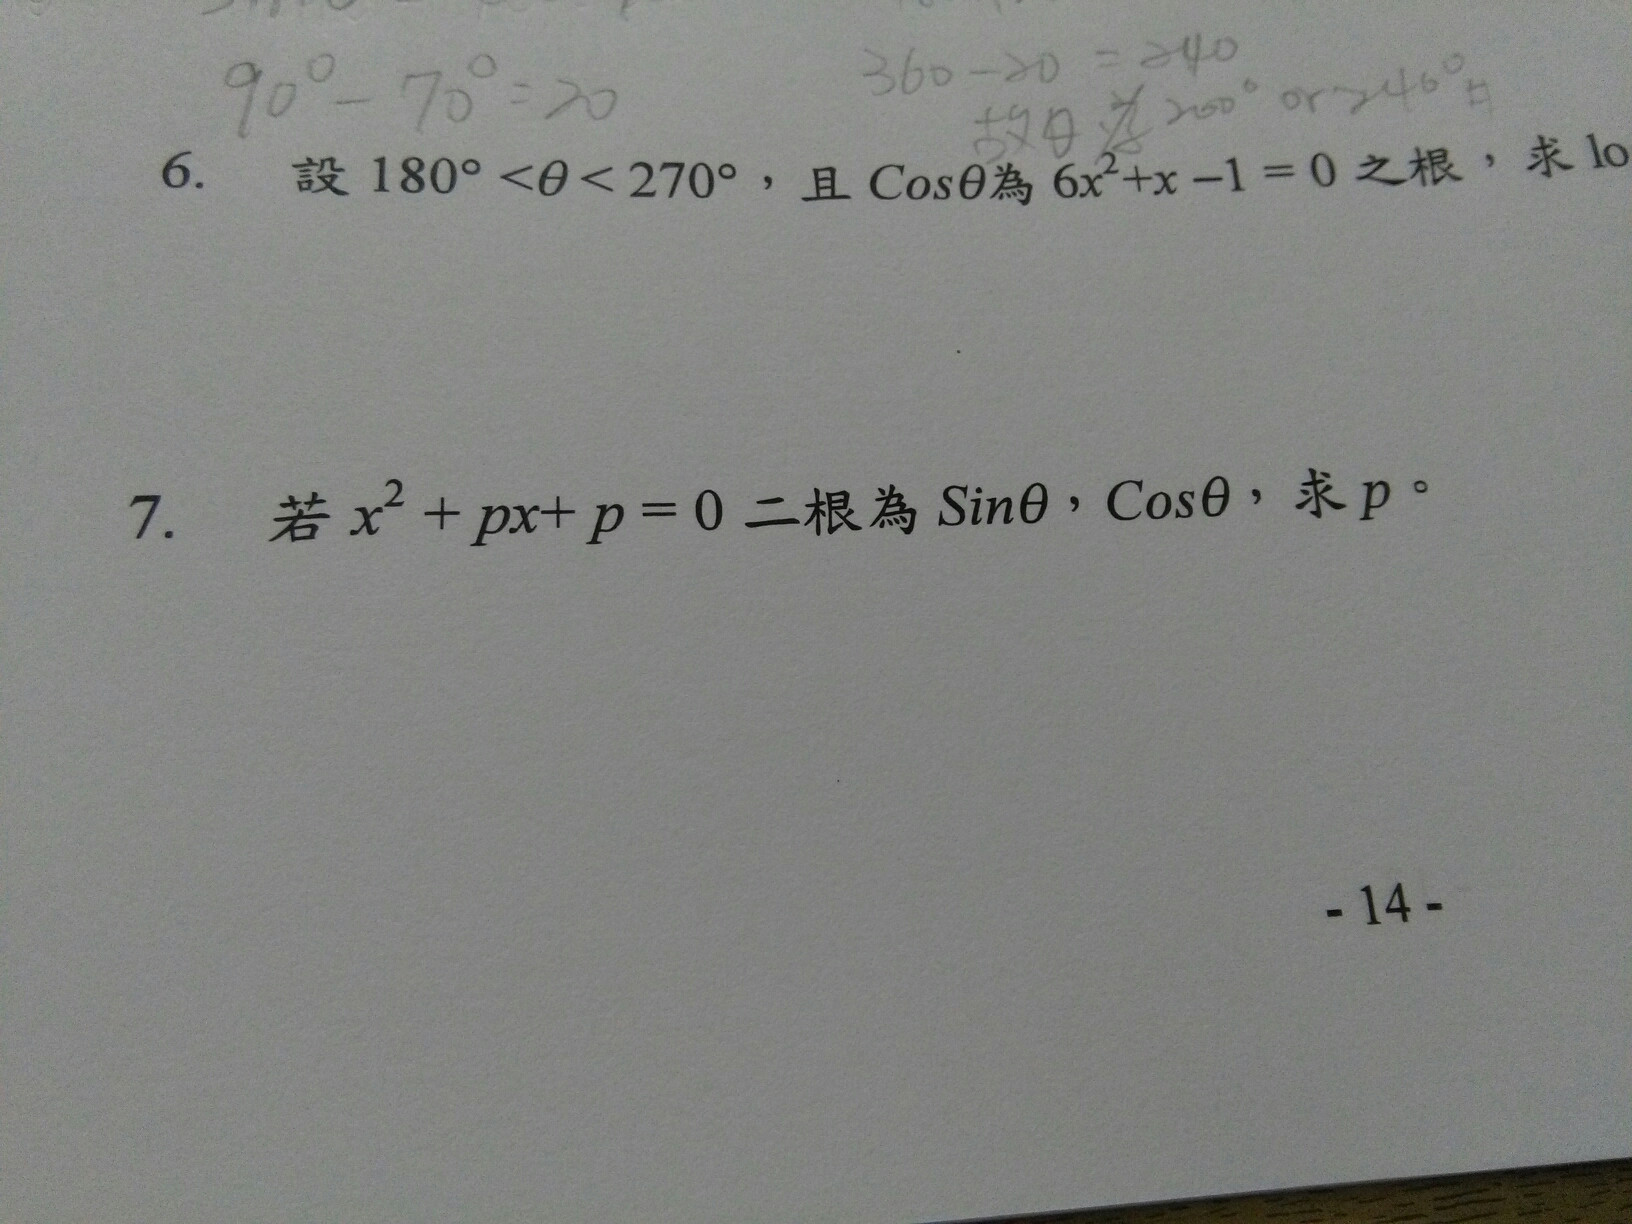 90° - 70° = 20
360 - 20 = 240
故θ為 200° or 240°
6. 設 180° <θ< 270°，且 Cosθ為 6x²+x –1 = 0 之根，求 lo
7. 若 x² + px+ p = 0 二根為 Sinθ，Cosθ，求 p。
- 14 -